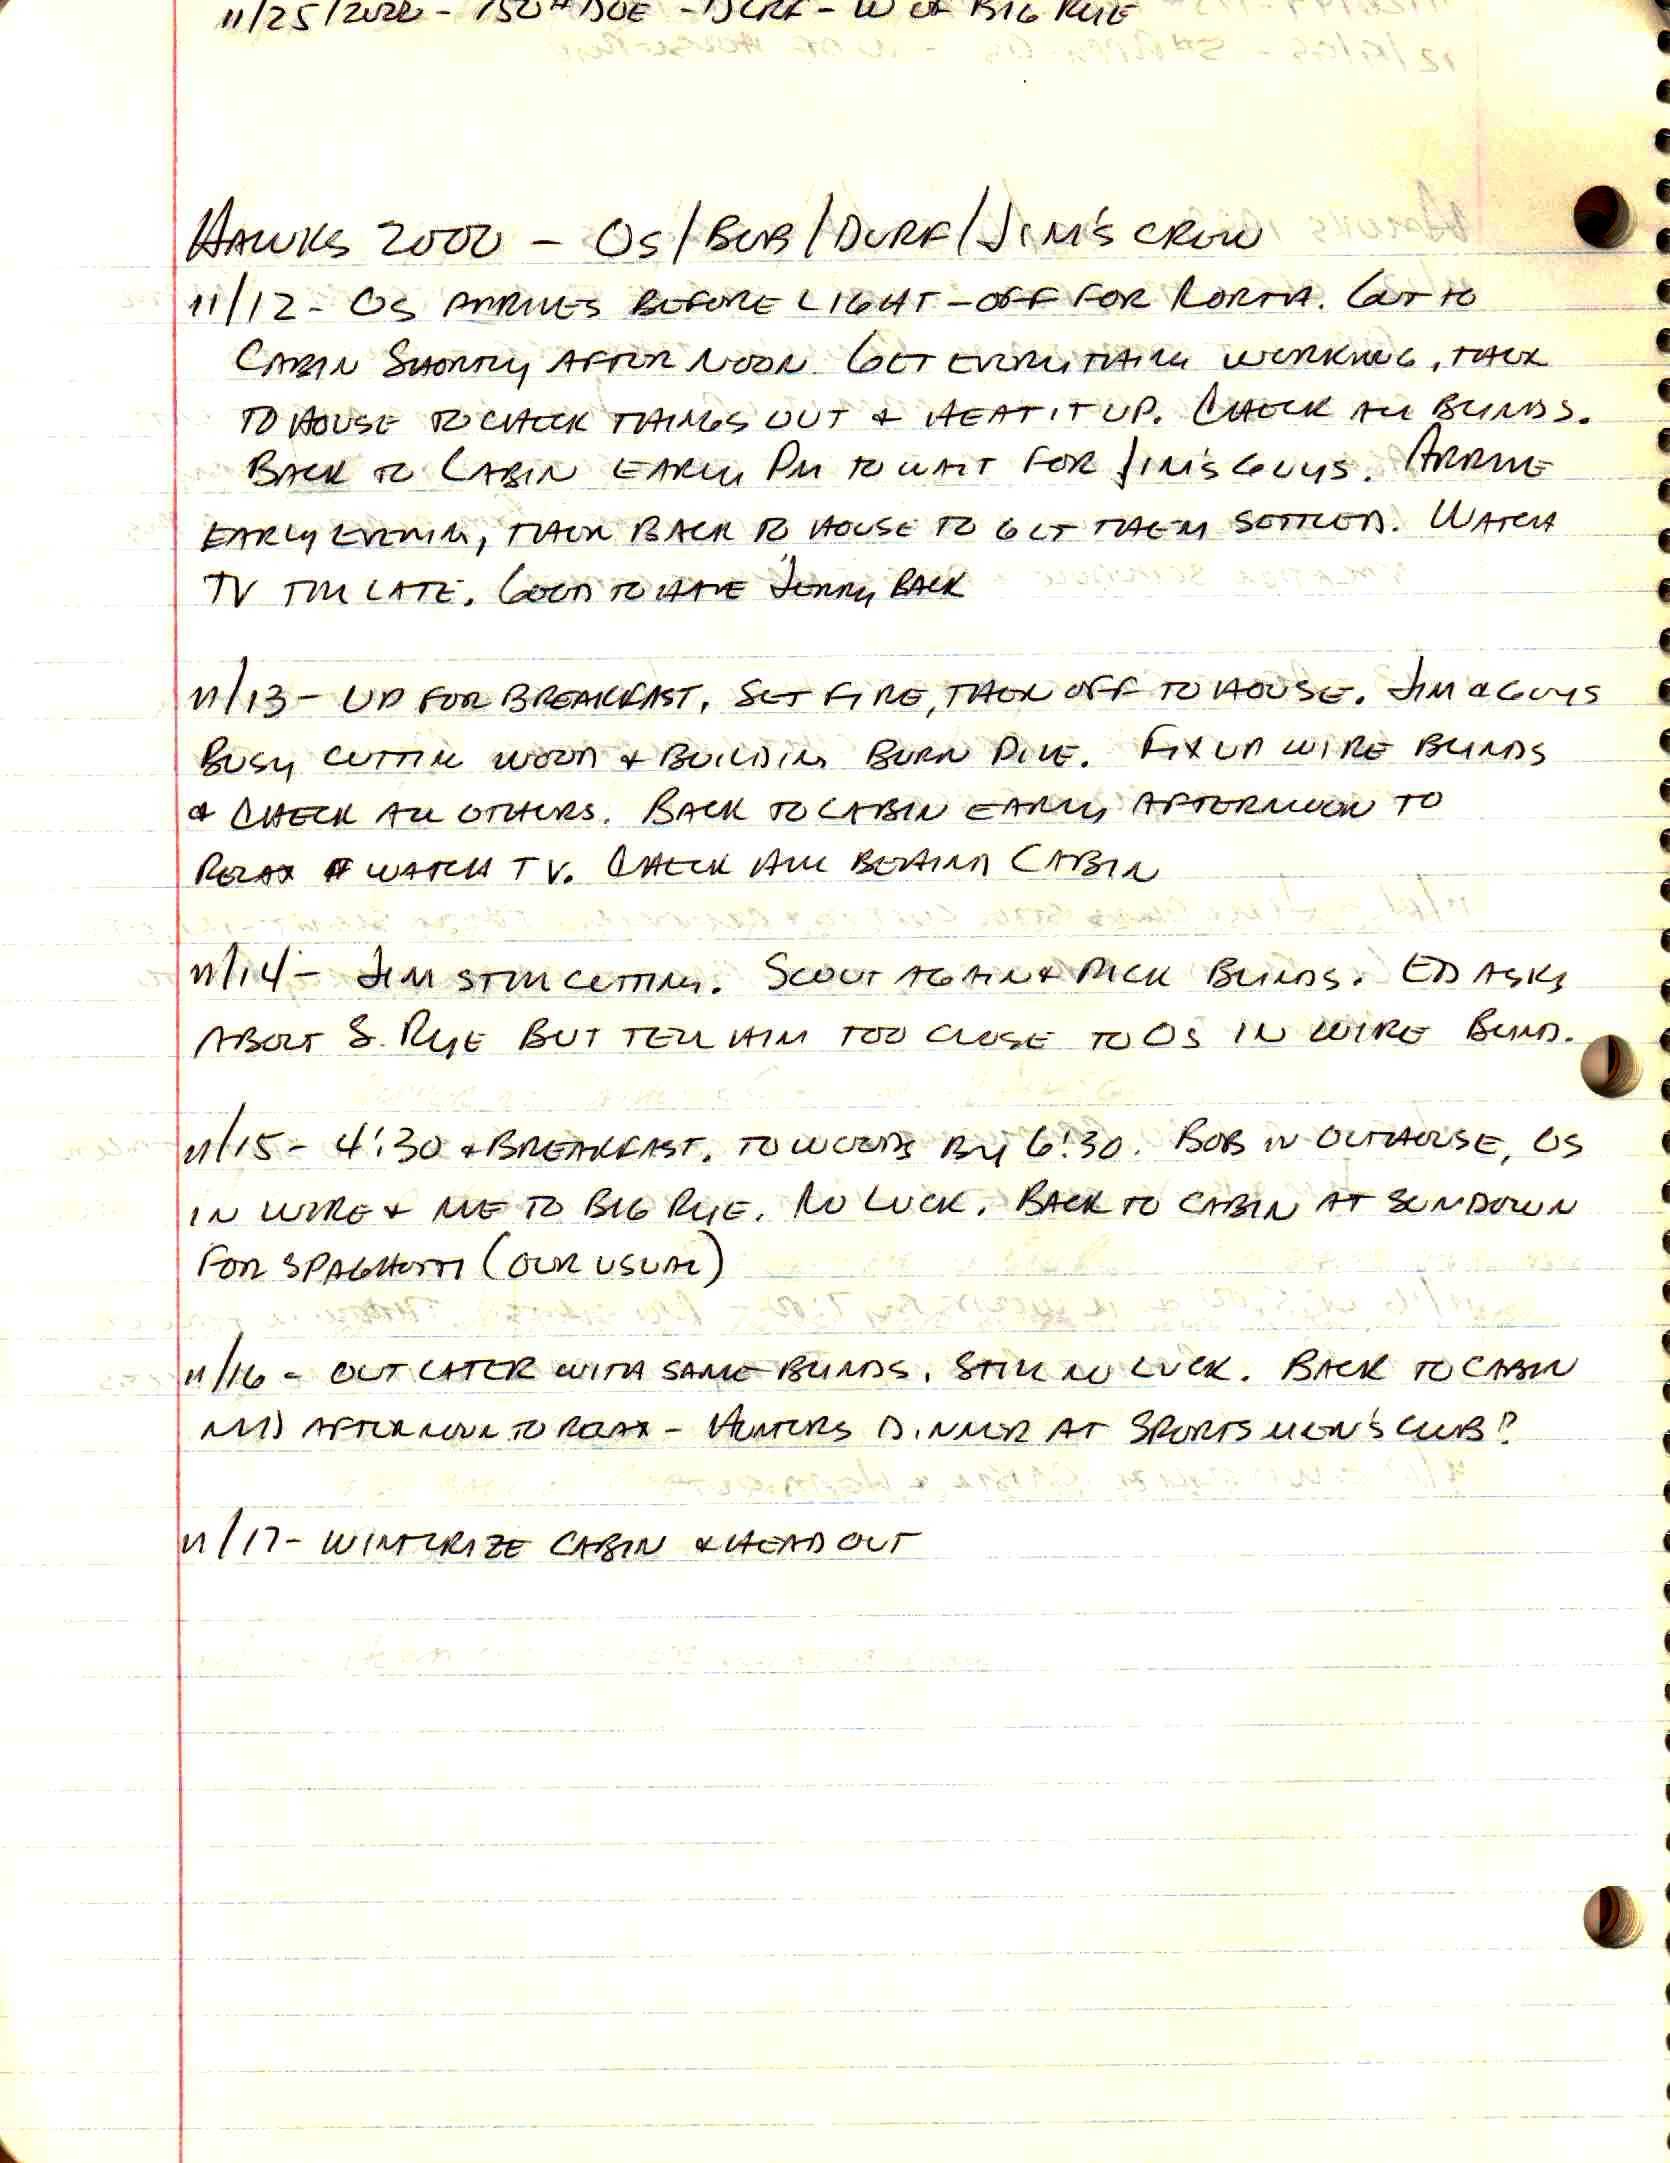 11/25/2000 - 150# DOE - DURF - W OF BIG RYE
HAWKS 2000 - OS/BOB/DURF/JIM'S CREW
11/12 - OS ARRIVES BEFORE LIGHT - OFF FOR NORTH. GOT TO
CABIN SHORTLY AFTER NOON. GET EVERYTHING WORKING, THEN
TO HOUSE TO CHECK THINGS OUT & HEAT IT UP. CHECK ALL BLINDS.
BACK TO CABIN EARLY PM TO WAIT FOR JIM'S GUYS. ARRIVE
EARLY EVENING, THEN BACK TO HOUSE TO GET THEM SETTLED. WATCH
TV TILL LATE. GOOD TO HAVE JERRY BACK
11/13 - UP FOR BREAKFAST, SET FIRE, THEN OFF TO HOUSE. JIM & GUYS
BUSY CUTTING WOOD & BUILDING BURN PILE. FIX UP WIRE BLINDS
& CHECK ALL OTHERS. BACK TO CABIN EARLY AFTERNOON TO
RELAX & WATCH TV. CHECK HILL BEHIND CABIN
11/14 - JIM STILL CUTTING. SCOUT AGAIN & PICK BLINDS. ED ASKS
ABOUT S. RYE BUT TELL HIM TOO CLOSE TO OS IN WIRE BLIND.
11/15 - 4:30 & BREAKFAST, TO WOODS BY 6:30. BOB IN OUTHOUSE, OS
IN WIRE & ME TO BIG RYE. NO LUCK. BACK TO CABIN AT SUNDOWN
FOR SPAGHETTI (OUR USUAL)
11/16 - OUT LATER WITH SAME BLINDS. STILL NO LUCK. BACK TO CABIN
MID AFTERNOON TO RELAX - HUNTERS DINNER AT SPORTSMEN'S CLUB?
11/17 - WINTERIZE CABIN & HEAD OUT